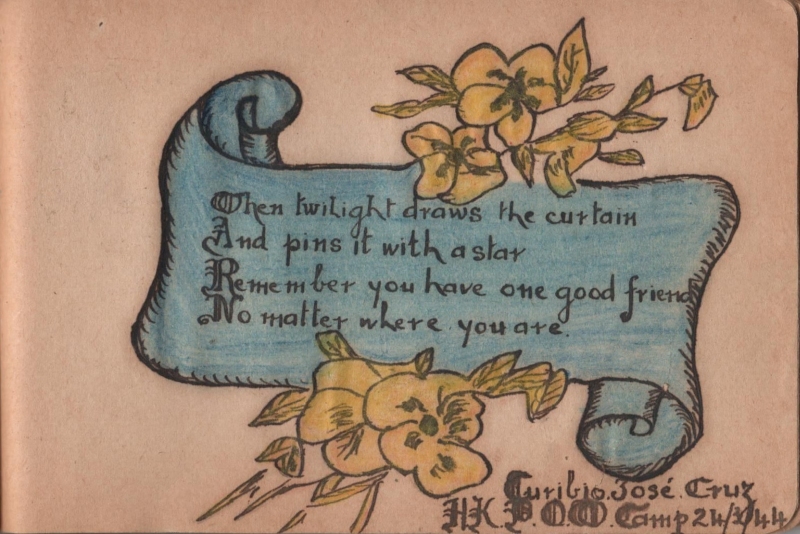 When twilight draws the curtain
And pins it with a star
Remember you have one good friend
No matter where you are.
Turibio José Cruz
H.K. P.O.W. Camp 24/1/44